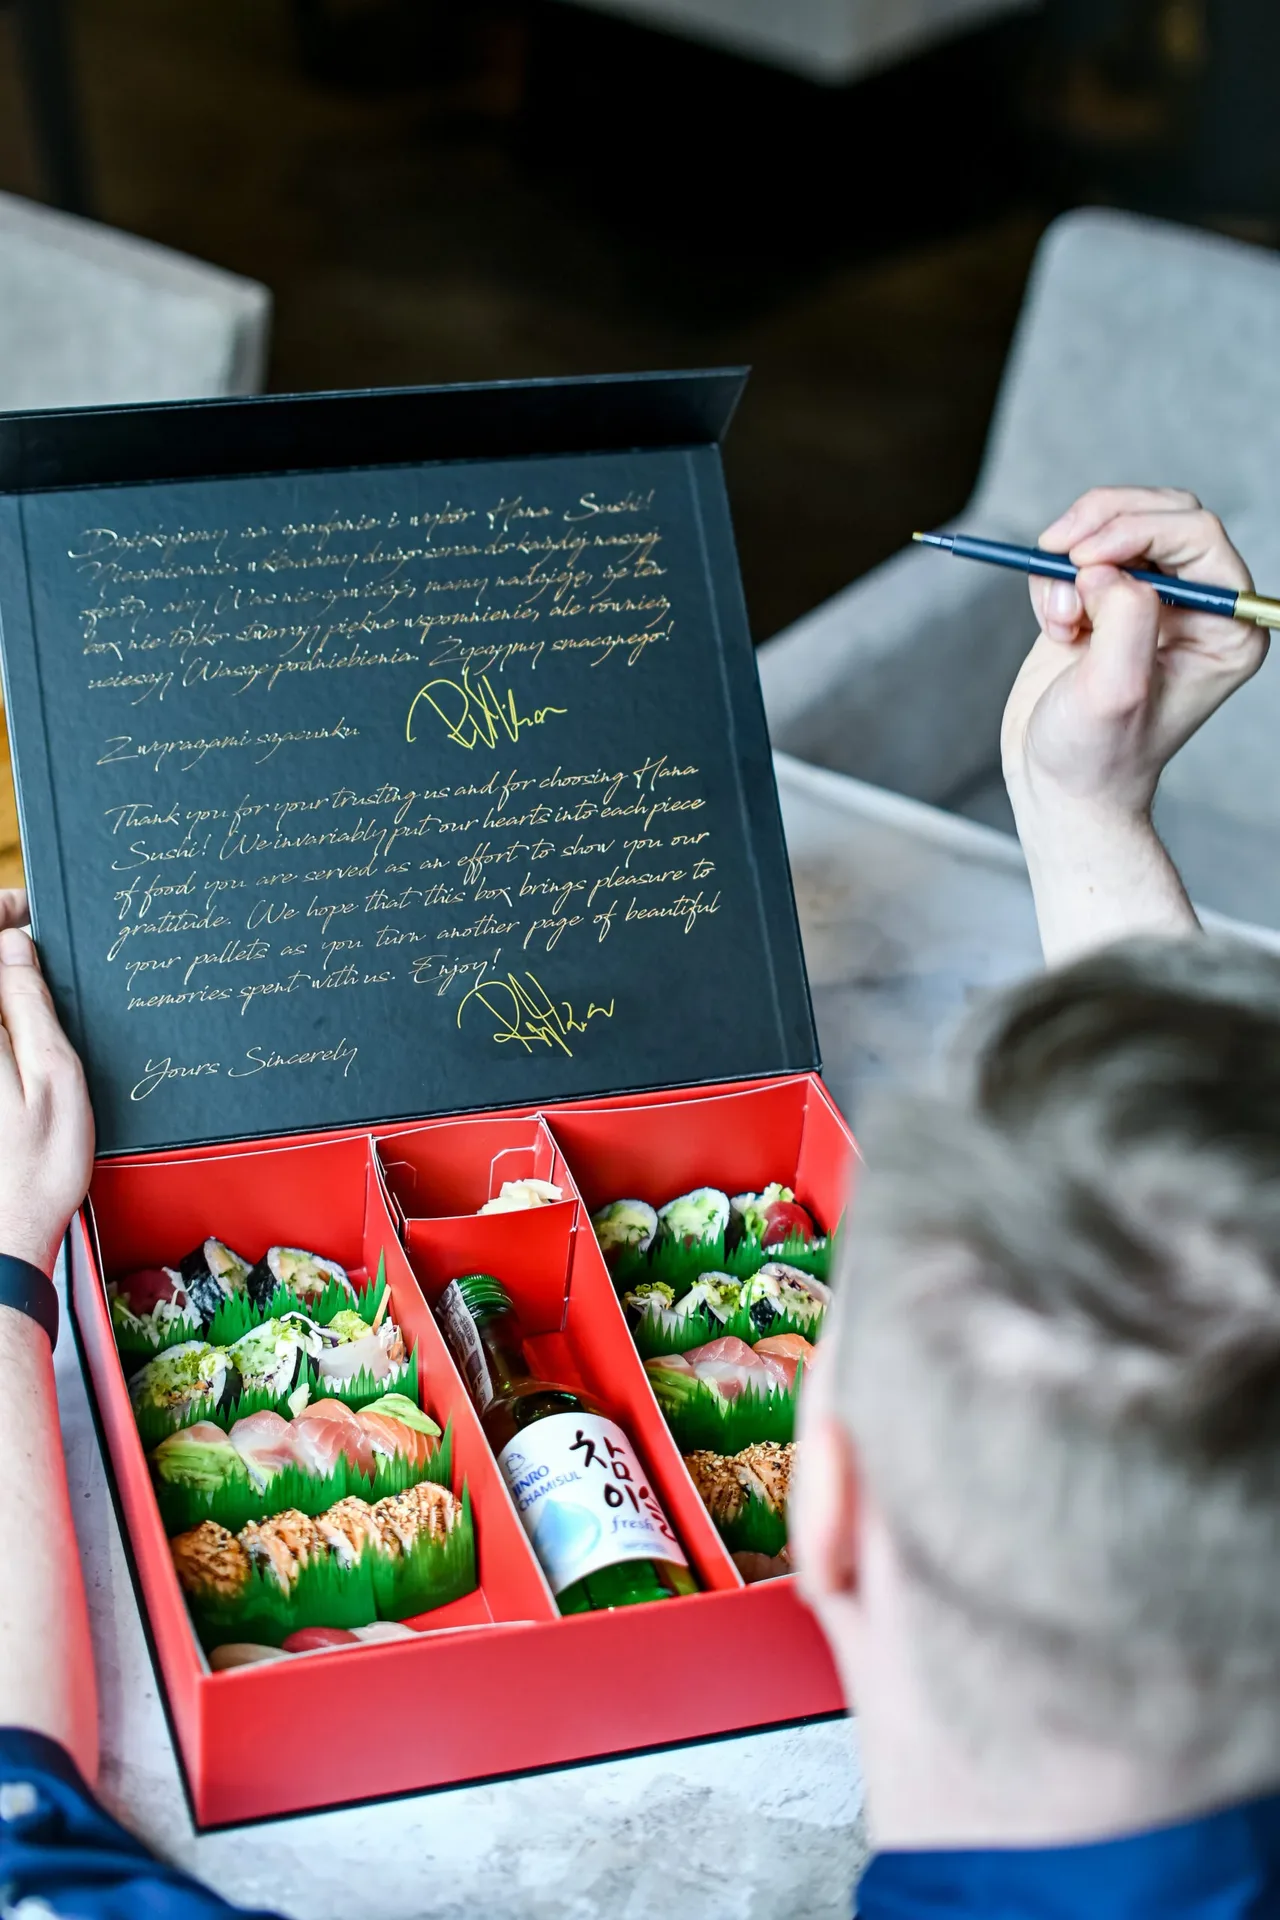 Dziękujemy za zaufanie i wybór Hana Sushi!
Niezmiennie wkładamy dużo serca do każdej naszej
aby Was nie zawieść, mamy nadzieję, że ten
box nie tylko stworzy piękne wspomnienie, ale również
ucieszy Wasze podniebienia. Życzymy smacznego!
Z wyrazami szacunku
Thank you for your trusting us and for choosing Hana
Sushi! We invariably put our hearts into each piece
of food you are served as an effort to show you our
gratitude. We hope that this box brings pleasure to
your pallets as you turn another page of beautiful
memories spent with us. Enjoy!
Yours Sincerely
JINRO
CHAMISUL
참
이슬
fresh